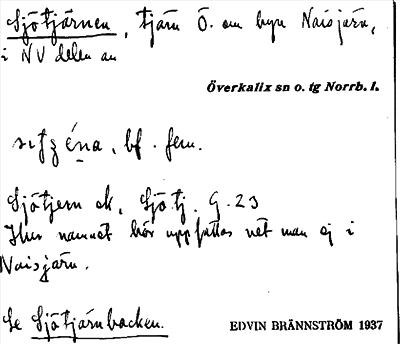 Sjötjärnen, tjärn Ö. om byn Naisjärv,
i NV delen av
Överkalix sn o. tg Norrb. l.
bf. fem.
Sjötjern ek, Sjötj. G. 23
Hur namnet bör uppfattas vet man ej i
Naisjärv.
Se Sjötjärnbacken.
EDVIN BRÄNNSTRÖM 1937